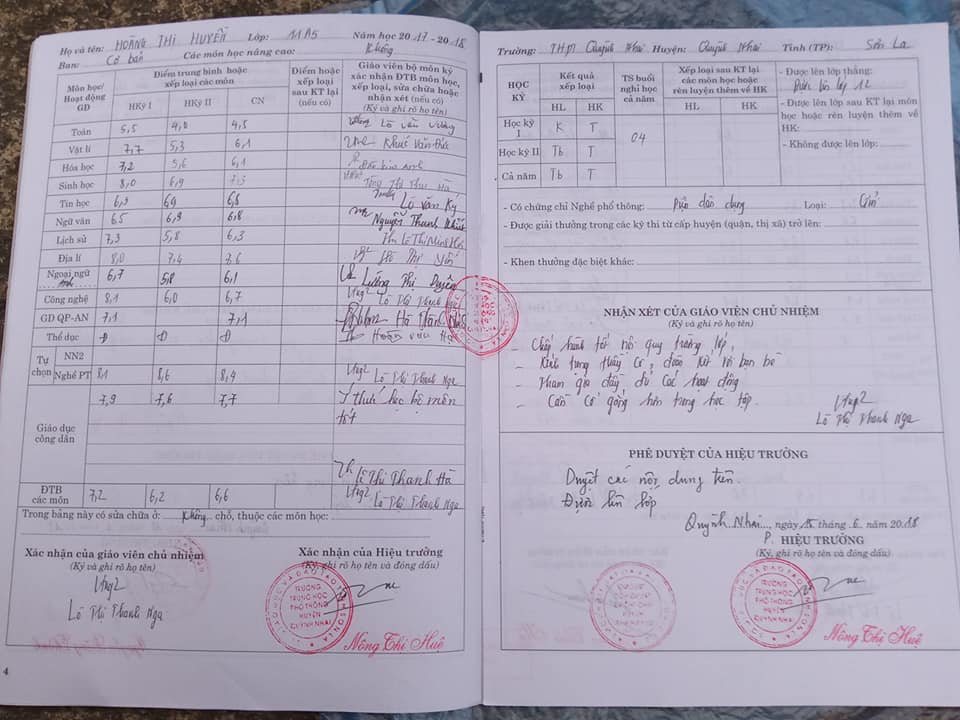 Họ và tên: HOÀNG THỊ HUYỀN Lớp: 11A5 Năm học 2017-2018
Ban: Cơ bản Các môn học nâng cao: Không
Môn học/ Hoạt động GD
Điểm trung bình hoặc xếp loại các môn
HKỳ I HKỳ II CN
Điểm hoặc xếp loại sau KT lại (nếu có)
Giáo viên bộ môn ký xác nhận ĐTB môn học, xếp loại, sửa chữa hoặc nhận xét (nếu có)
(Ký và ghi rõ họ tên)
Toán 5,5 4,0 4,5 Lò Văn Vương
Vật lí 7,7 5,3 6,1 Khúc Văn Đức
Hóa học 7,2 5,6 6,1
Sinh học 8,0 6,9 7,3 Tòng Thị Thu Hà
Tin học 6,9 6,8 Lò Văn Kỳ
Ngữ văn 6,5 6,9 6,8 Nguyễn Thanh
Lịch sử 7,3 5,8 6,3 Lê Thị Minh
Địa lí 8,0 7,4 7,6
Ngoại ngữ Anh 6,7 5,8 6,1 Lường Thị Duyên
Công nghệ 8,1 6,0 6,7 Lò Thị Thanh Nga
GD QP-AN 7,1 7,1 Hà Văn
Thể dục Đ Đ Đ Hoàng Văn
Tự chọn
NN2
Nghề PT 8,1 8,6 8,4 Lò Thị Thanh Nga
Giáo dục công dân 7,9 7,6 7,7 Ý thức học bộ môn
tốt
Lê Thị Thanh Hà
ĐTB các môn 7,2 6,2 6,6 Lò Thị Thanh Nga
Trong bảng này có sửa chữa ở: Không chỗ, thuộc các môn học:
Xác nhận của giáo viên chủ nhiệm
(Ký và ghi rõ họ tên)
Lò Thị Thanh Nga
Xác nhận của Hiệu trưởng
(Ký, ghi rõ họ tên và đóng dấu)
TRƯỜNG
TRUNG HỌC
PHỔ THÔNG
HUYỆN
QUỲNH NHAI
Nông Thị Huệ
4
Trường: THPT Quỳnh Nhai Huyện: Quỳnh Nhai Tỉnh (TP): Sơn La
HỌC KỲ
Kết quả xếp loại
HL HK
TS buổi nghỉ học cả năm
Xếp loại sau KT lại các môn học hoặc rèn luyện thêm về HK
HL HK
Học kỳ I K T 04
Học kỳ II Tb T
Cả năm Tb T
- Được lên lớp thẳng:
Được lên lớp 12
- Được lên lớp sau KT lại môn học hoặc rèn luyện thêm về HK:
- Không được lên lớp:
- Có chứng chỉ Nghề phổ thông: Điện dân dụng Loại:
- Được giải thưởng trong các kỳ thi từ cấp huyện (quận, thị xã) trở lên:
- Khen thưởng đặc biệt khác:
NHẬN XÉT CỦA GIÁO VIÊN CHỦ NHIỆM
(Ký và ghi rõ họ tên)
- Chấp hành tốt nội quy trường lớp,
- Kính trọng thầy cô, đoàn kết với bạn bè
- Tham gia đầy đủ các hoạt động
- Cần cố gắng hơn trong học tập.
Lò Thị Thanh Nga
PHÊ DUYỆT CỦA HIỆU TRƯỞNG
Duyệt các nội dung trên.
Được lên lớp
Quỳnh Nhai, ngày 25 tháng 6 năm 2018
P. HIỆU TRƯỞNG
(Ký, ghi rõ họ tên và đóng dấu)
TRƯỜNG
TRUNG HỌC
PHỔ THÔNG
HUYỆN
QUỲNH NHAI
Nông Thị Huệ